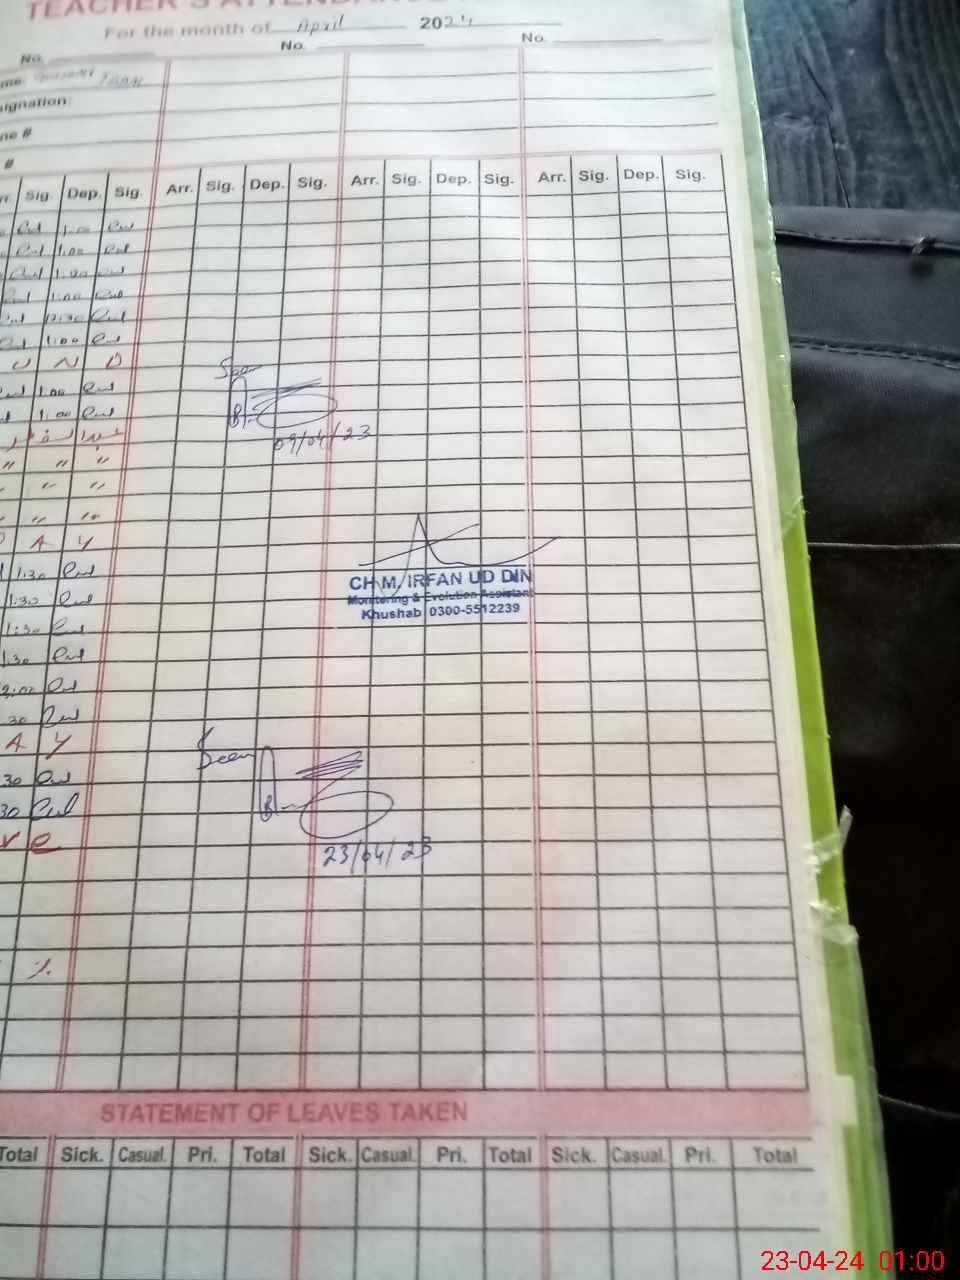 TEACHER'S ATTENDANCE
For the month of April 2024
No. No. No.
signation
ne #
#
rr. Sig. Dep. Sig. Arr. Sig. Dep. Sig. Arr. Sig. Dep. Sig. Arr. Sig. Dep. Sig.
1:00
1:00
1:00
1:00
12:30
1:00
U N D
1:00
1:00
Seen
09/04/23
عید الفطر
" " "
" " "
" " "
D A Y
1:30
1:30
1:30
1:30
CH M. IRFAN UD DIN
Monitoring & Evolution Assistant
Khushab 0300-5512239
2:00
30
A Y
Seen
30
30
ve
23/04/23
%
STATEMENT OF LEAVES TAKEN
Total Sick. Casual. Pri. Total Sick. Casual. Pri. Total Sick. Casual. Pri. Total
23-04-24 01:00